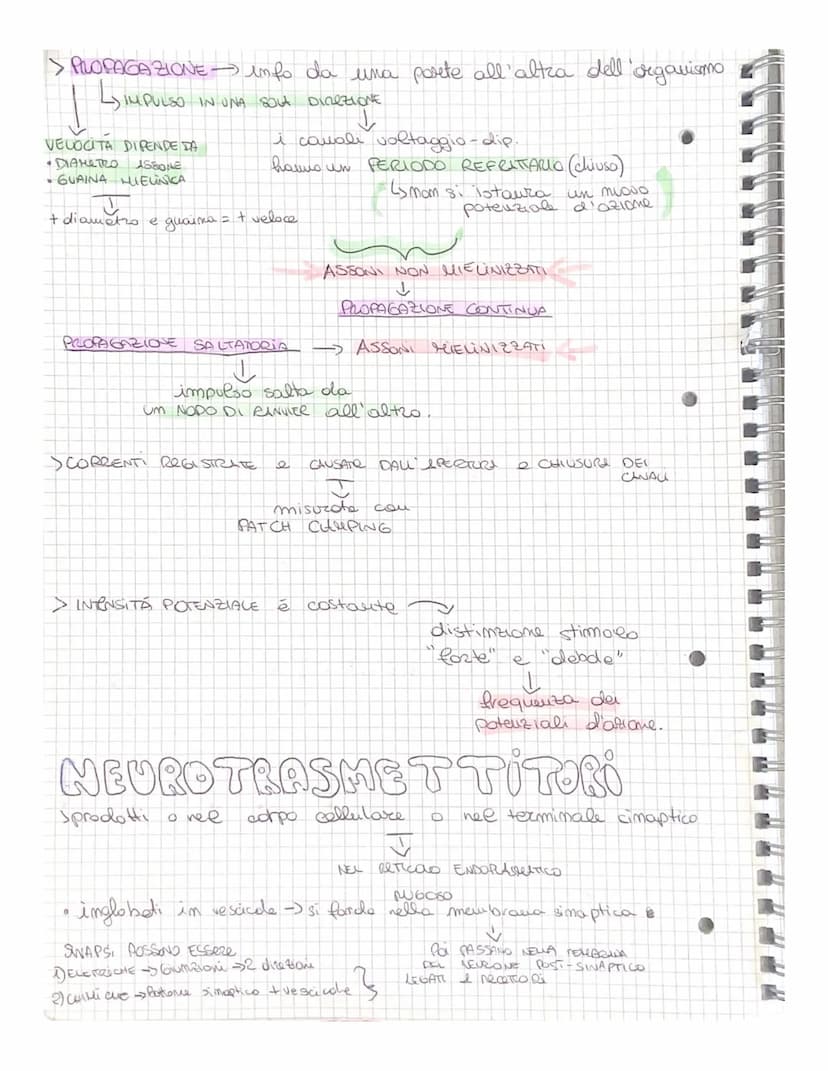 > PROPAGAZIONE → info da una parte all'altra dell'organismo
↳ IMPULSO IN UNA SOLA DIREZIONE
VELOCITÀ DIPENDE DA
• DIAMETRO ASSONE
• GUAINA MIELINICA
+ diametro e guaina = + veloce
i canali voltaggio-dip.
hanno un PERIODO REFRATTARIO (chiuso)
↳ non si istaura un nuovo
potenziale d'azione
ASSONI NON MIELINIZZATI
PROPAGAZIONE CONTINUA
PROPAGAZIONE SALTATORIA → ASSONI MIELINIZZATI
impulso salta da
um NODO DI RANVIER all'altro.
> CORRENTI REGISTRATE e CAUSATE DALL'APERTURA e CHIUSURA DEI
CANALI
misurate con
PATCH CLAMPING
> INTENSITÁ POTENZIALE é costante
distinzione stimolo
"forte" e "debole"
frequenza dei
potenziali d'azione.
NEUROTRASMETTITORI
> prodotti o nel corpo cellulare o nel terminale cinaptico
NEL RETICOLO ENDOPLASMATICO
RUGOSO
• inglobati in vescicole → si fonde nella membrana sinaptica e
Poi PASSANO NELLA MEMBRANA
DEL NEURONE POST-SINAPTICO
LEGATI A RECETTORI
SINAPSI POSSONO ESSERE
1) ELETTRICHE → Giunzioni → 2 direzioni
2) CHIMICHE → bottone sinaptico + vescicole